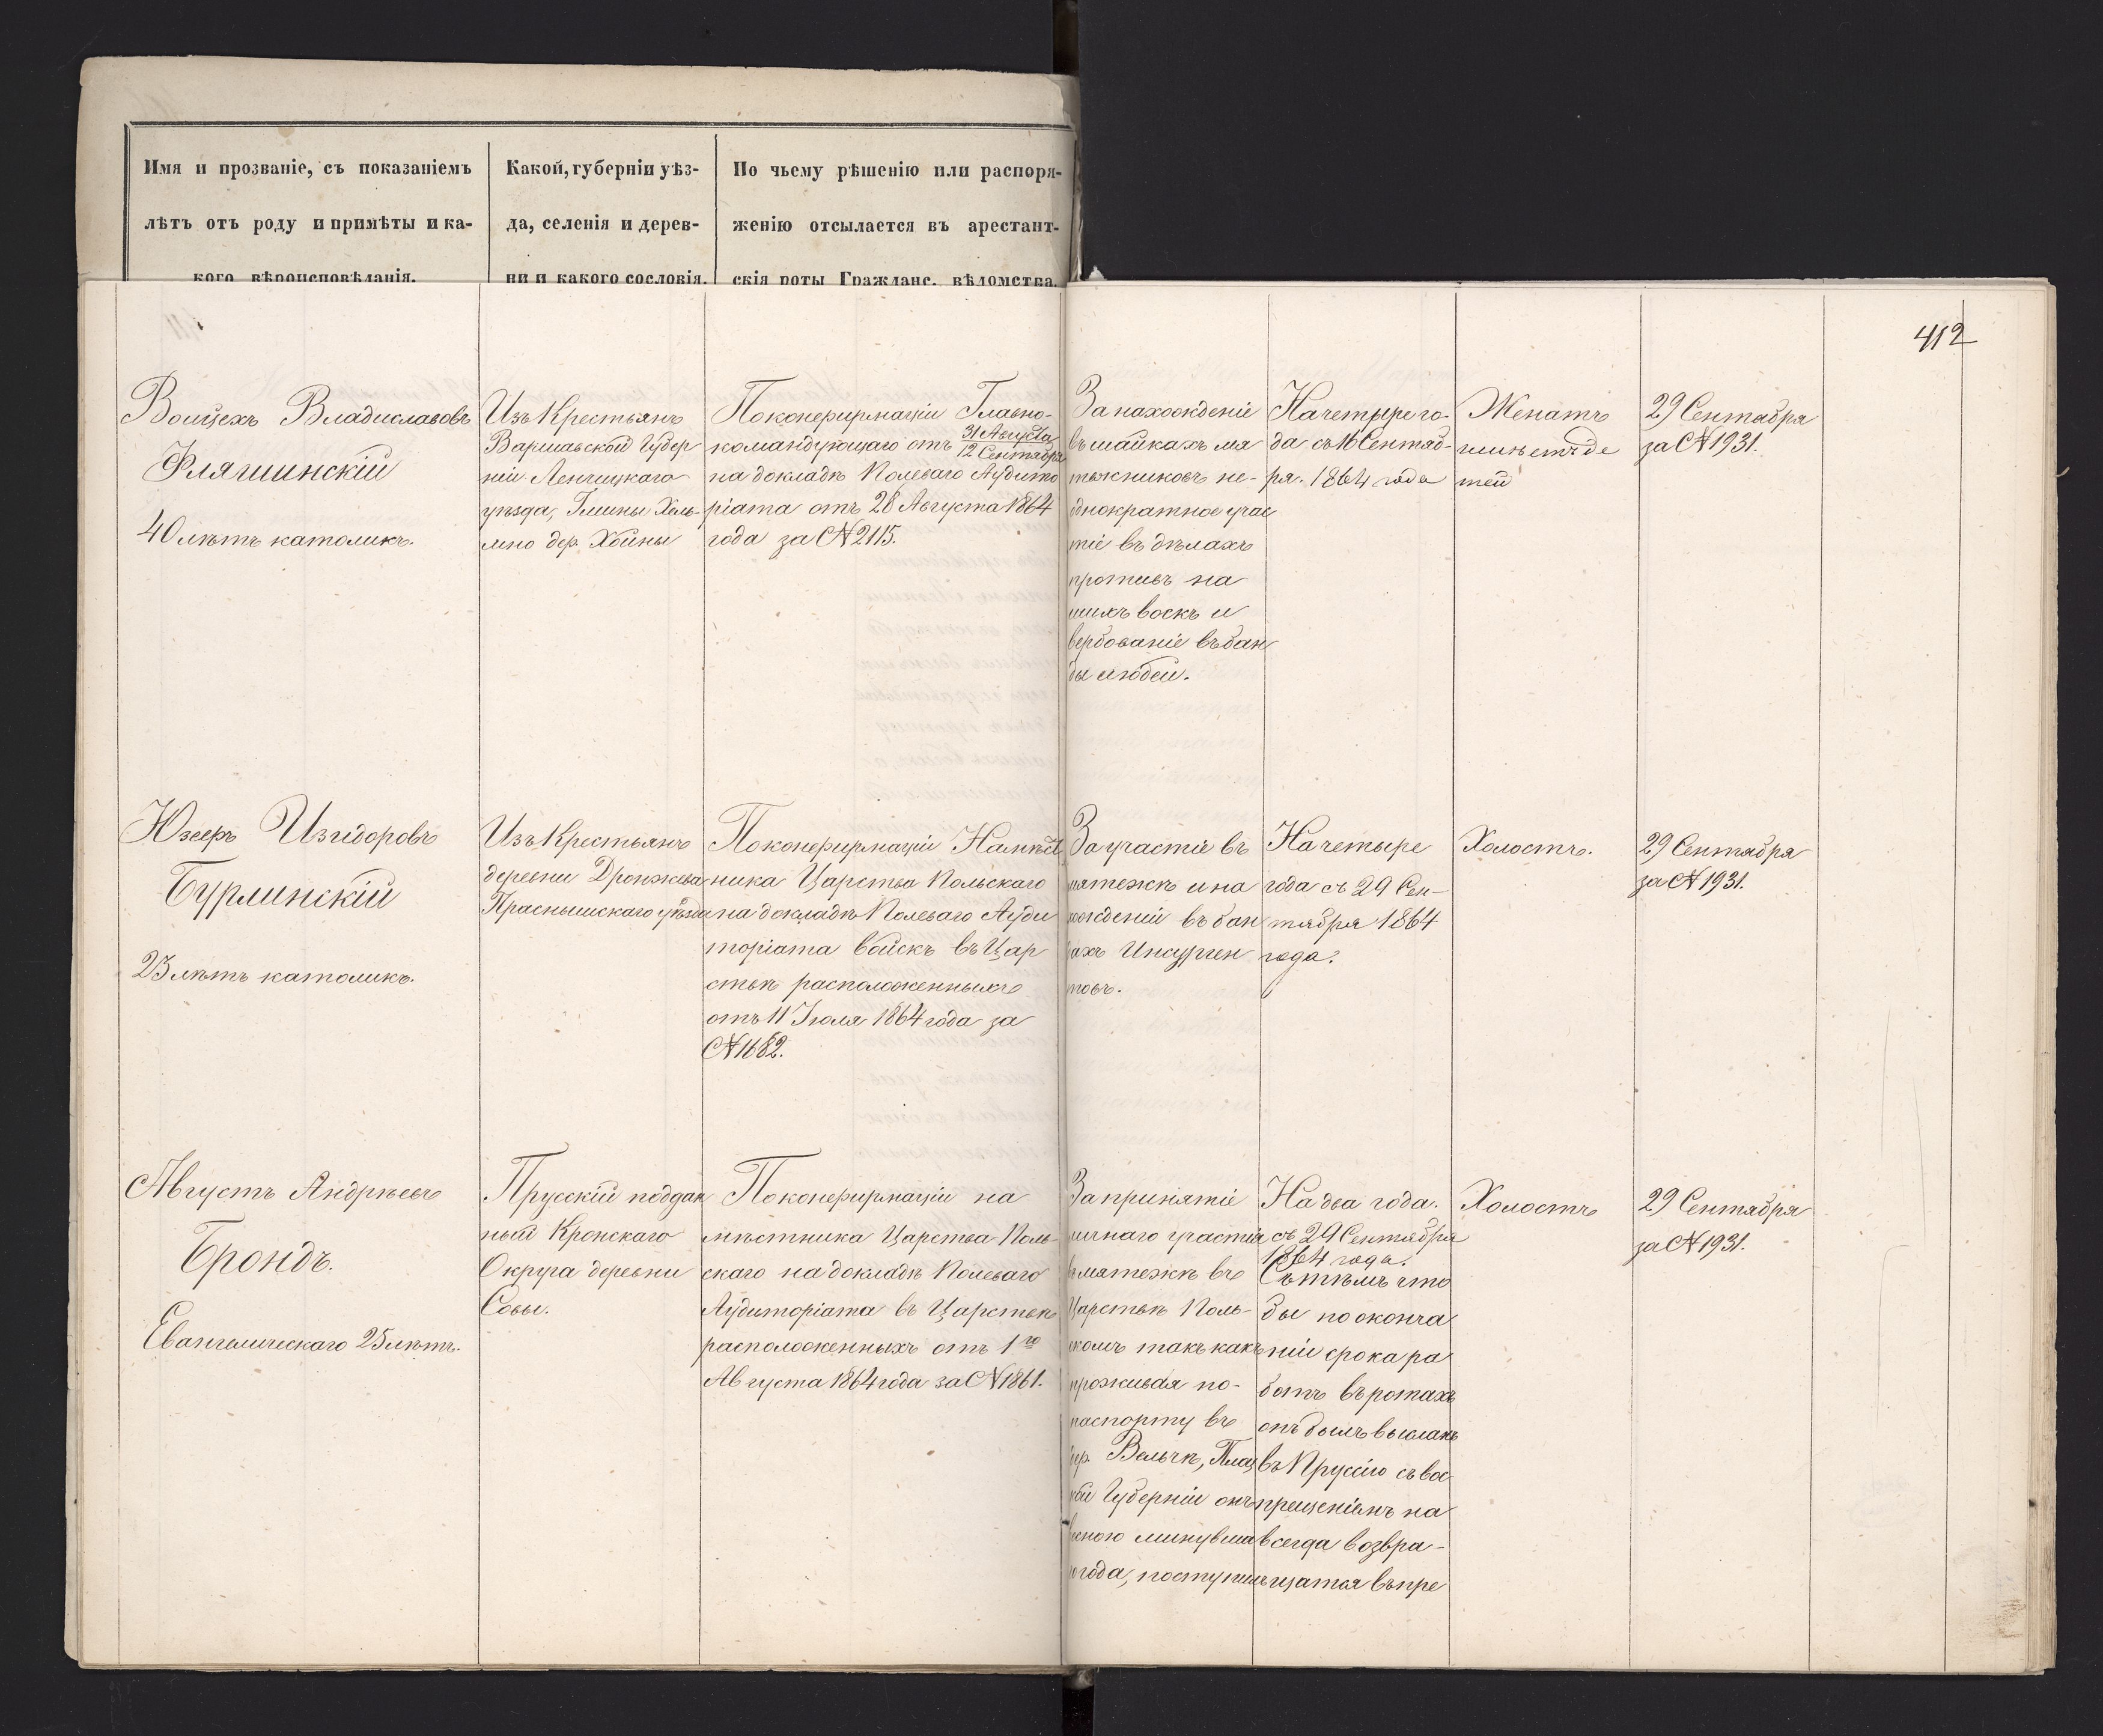 Имя и прозваніе, съ показаніемъ
лѣтъ отъ роду и примѣты и ка-
кого вѣроисповѣданія.
Какой, губерніи уѣз-
да, селенія и дерев-
ни и какого сословія.
По чьему рѣшенію или распоря-
женію отсылается въ арестант-
скія роты Гражданс. вѣдомства.
412
Войцехъ Владиславовъ
Фляшинскій
40 лѣтъ католикъ.
Изъ Крестьянъ
Варшавской Губер
ніи Ленчицкаго
уѣзда, Гмины Хель-
мно дер. Хойны
По конфирмаціи Главно-
командующаго отъ 31 Августа
12 Сентября
на докладѣ Полеваго Аудито
ріата отъ 28 Августа 1864
года за № 2115.
За нахожденіе
въ шайкахъ мя
тежниковъ не-
однократное учас
тіе въ дѣлахъ
противъ на
шихъ воскъ и
вербованіе въ бан
ды людей.
На четыре го-
да съ 16 Сентяб-
ря. 1864 года
Женатъ
имѣетъ де
тей
29 Сентября
за № 1931.
Юзефъ Изидоровъ
Бурлинскій
23 лѣтъ католикъ.
Изъ Крестьянъ
деревни Дронжева
Праснышскаго уѣзда
По конфирмаціи Намѣст
ника Царства Польскаго
на докладѣ Полеваго Ауди
торіата войскъ въ Цар
ствѣ расположенныхъ
отъ 11 Іюля 1864 года за
№ 1682.
За участіе въ
мятежѣ и на
хожденіи въ бан
дахъ Инсурген
товъ.
На четыре
года съ 29 Сен-
тября 1864
года.
Холостъ.
29 Сентября
за № 1931.
Августъ Андрѣевъ
Брондъ.
Евангелическаго 25 лѣтъ.
Прусскій поддан
ный Кронскаго
Округа деревни
Совы.
По конфирмаціи на
мѣстника Царства Поль-
скаго на докладѣ Полеваго
Аудиторіата въ Царствѣ
расположенныхъ отъ 1го
Августа 1864 года за № 1861.
За принятіе
личнаго участія
въ мятежѣ въ
Царствѣ Поль-
скомъ такъ какъ
проживая по-
паспорту въ
дер. Вельчѣ, Плоц
кой Губерніи онъ
весною минувша
го года, поступилъ
На два года.
съ 29 Сентября
1864 года.
Съ тѣмъ что
бы по оконча
ніи срока ра
ботъ въ ротахъ
онъ былъ высланъ
въ Пруссію съ вос
прещеніемъ на
всегда возвра-
щатся въ пре
Холостъ
29 Сентября
за № 1931.